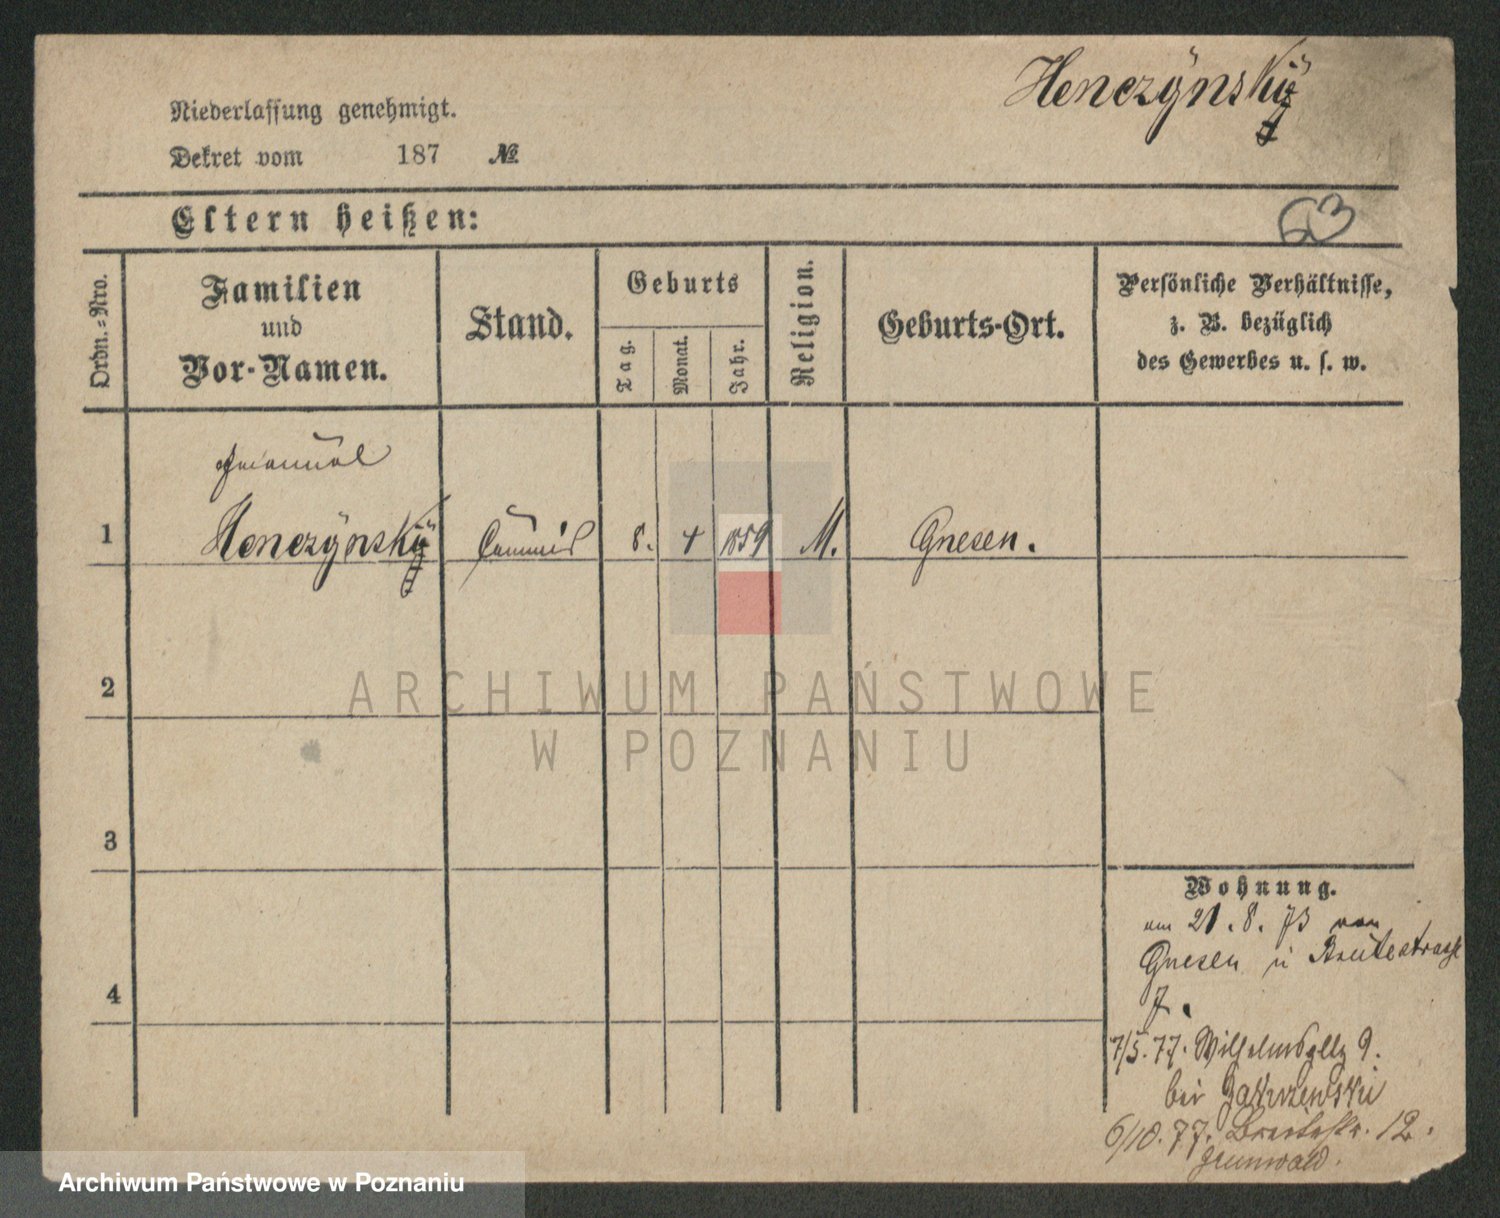 Henczÿnskÿ
Niederlassung genehmigt.
Dekret vom 187 №
Eltern heißen:
63
Ordn.=Nro.
Familien
und
Vor-Namen.
Stand.
Geburts
Tag.
Monat.
Jahr.
Religion.
Geburts-Ort.
Persönliche Verhältnisse,
z. B. bezüglich
des Gewerbes u. s. w.
1
Henczÿnskÿ
Commis
8.
4
1859
M.
Gnesen.
2
3
4
ARCHIWUM PAŃSTWOWE
W POZNANIU
Wohnung.
am 21. 8. 73 von
Gnesen
7.
7/5. 77. 9.
bei
6/10. 77. Breitestr. 12.
Grunwald.
Archiwum Państwowe w Poznaniu